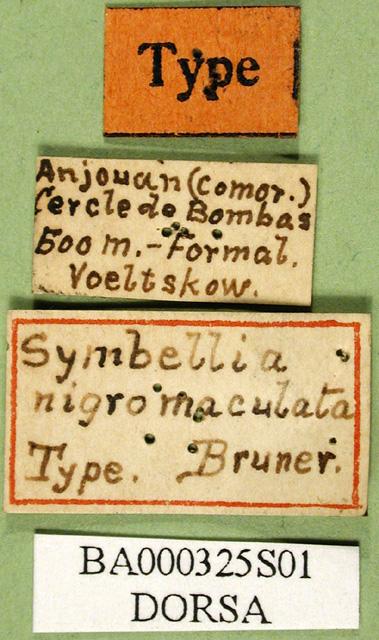 Type
Anjouan (Comor.)
Cercle de Bombas
500 m. - Formal.
Voeltskow.
Symbellia
nigromaculata
Type. Bruner.
BA000325S01
DORSA